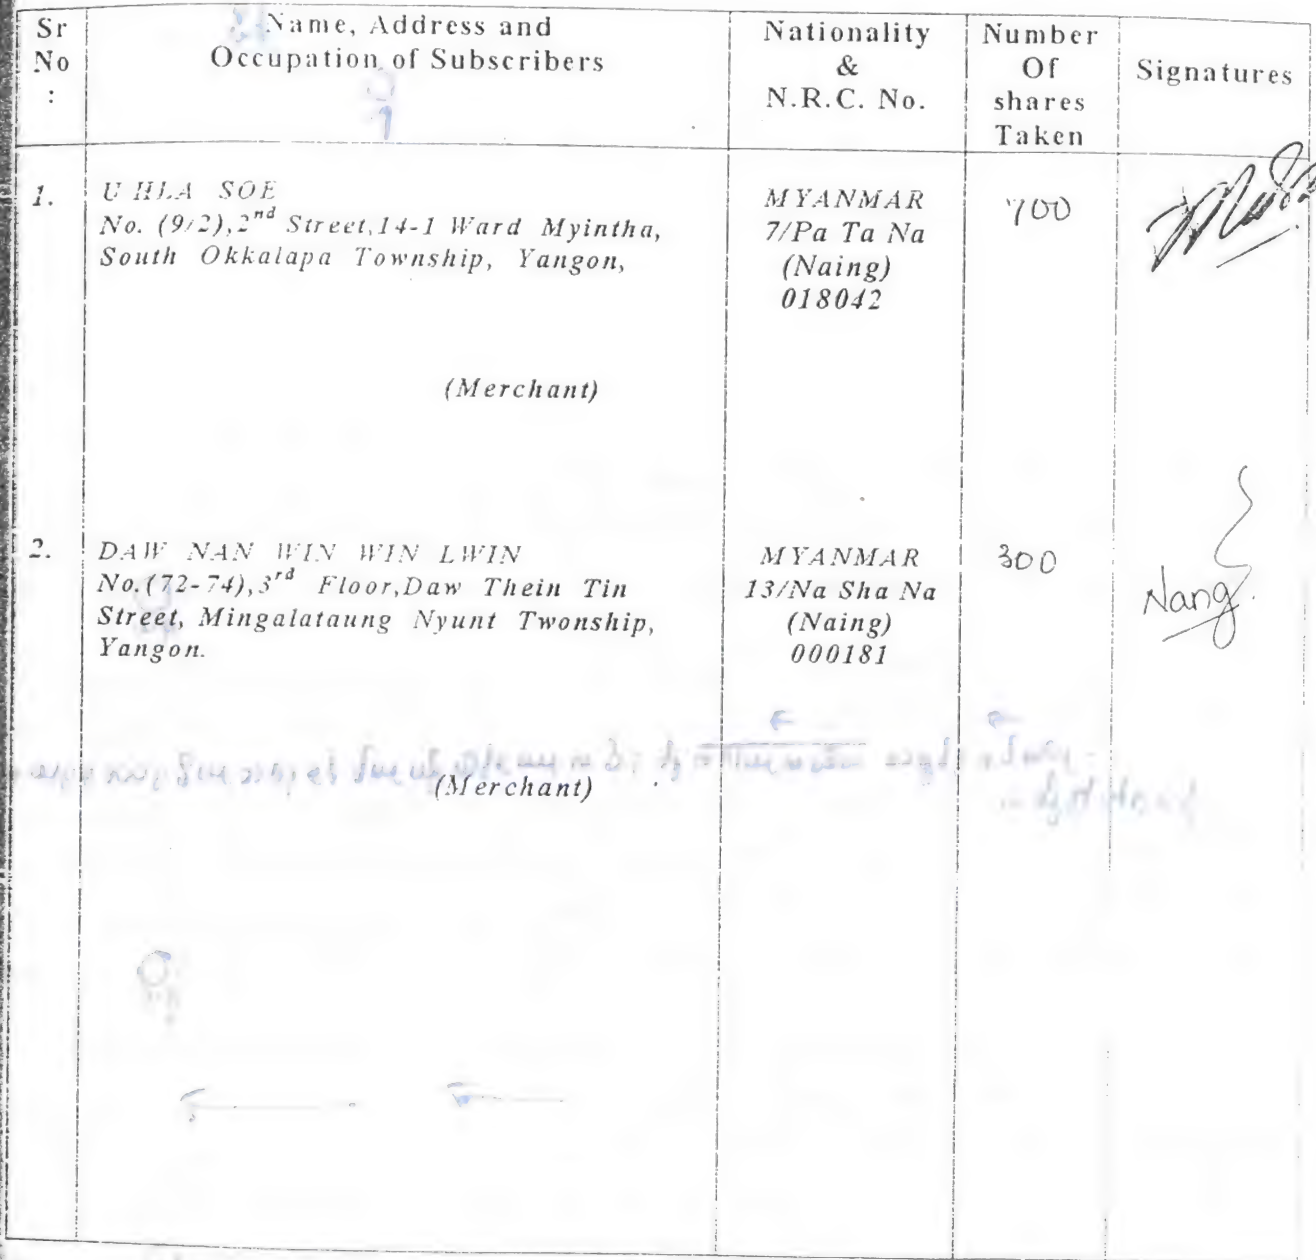 Sr
No
:
Name, Address and
Occupation of Subscribers
Nationality
&
N.R.C. No.
Number
Of
shares
Taken
Signatures
1.
U HLA SOE
No. (9/2),2nd Street,14-1 Ward Myintha,
South Okkalapa Township, Yangon,
(Merchant)
MYANMAR
7/Pa Ta Na
(Naing)
018042
700
2.
DAW NAN WIN WIN LWIN
No.(72-74),3rd Floor,Daw Thein Tin
Street, Mingalataung Nyunt Twonship,
Yangon.
(Merchant)
MYANMAR
13/Na Sha Na
(Naing)
000181
300
Nang